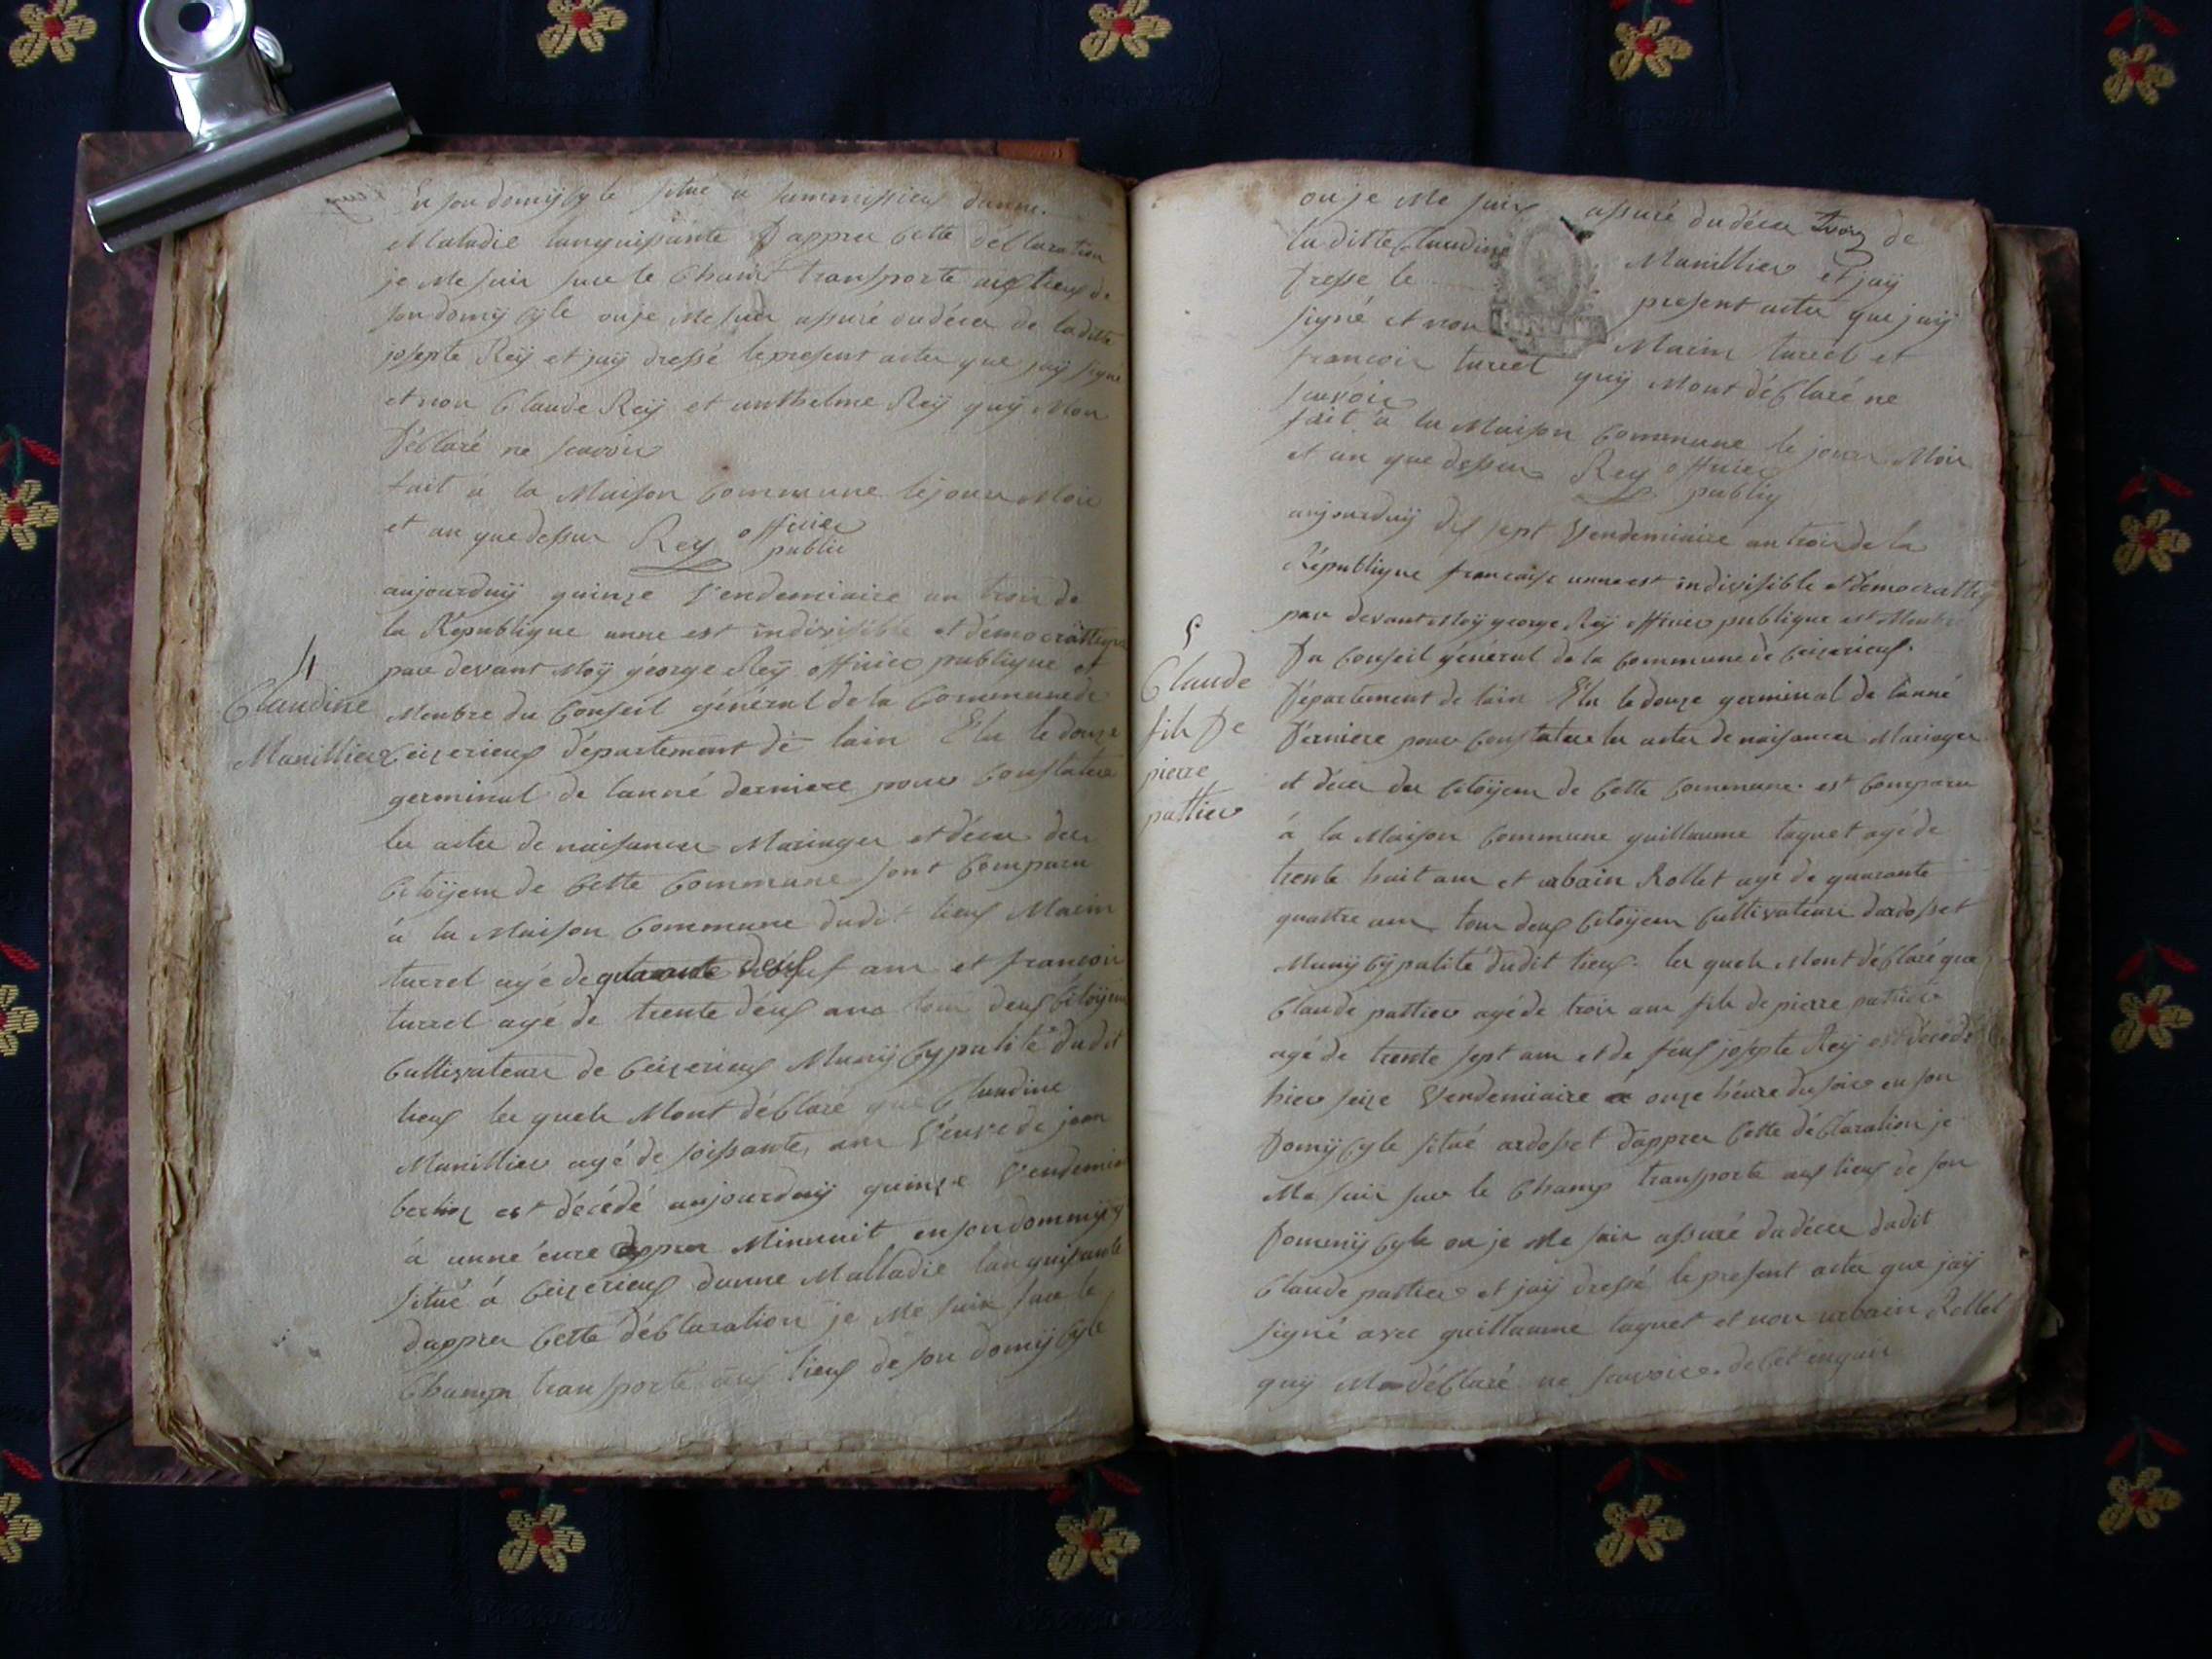 En son domijcyle situé à Summissieux dunne
Maladie languissante Dappres Cette déClaration
je Me suis sur le Champ transporte aux lieux de
son domijcyle ou je Me suis assuré du déces de laditte
josepte Reÿ et jaÿ dressé le present actes que jaÿ signé
et non Claude Reÿ et anthelme Reÿ quÿ Mon
DéClaré ne scavoir
fait à la Maison Commune le jours Mois
et an que dessus Rey officier
public
aujourduÿ quinze Vendemiaire an trois de
la République unne est indivisible et démocrattique
par devant Moÿ géorge Reÿ officier publique et
Menbre du Conseil général de la Commune de
Ceizerieux département de lain Elu le douze
germinal de lanné derniere pour Constater
les actes de naisances Mariages et déces des
Citoÿens de Cette Commune sont Comparu
à la Maison Commune dudit lieux Marin
turrel agé de quarante deux ans et francois
turrel agé de trente déux ans tous deux Citoÿens
Cultivateurs de Ceizerieux Munijcypalité dudit
lieux les quels Mont déClaré que Claudine
Manillier agé de soissante ans Véuve de jean
berlioz est décédé aujourduÿ quinze Vendemiaire
à unne éure appres Minnuit en son dommijcy
situé à Ceizerieux dunne Malladie languisante
dappres Cette déClaration je Me suis sur le
Champ transporte aux lieux de son domijcyle
4
Claudine
Manillier
ou je Me suis assuré du déces de
laditte Claudine Manillier et jaÿ
dresse le present actes que jaÿ
signé et non Marin turrel et
francois turrel quÿ Mont déClaré ne
scavoir
fait à la Maison Commune le jours Mois
et an que dessus Rey officier
publiq
aujourduÿ dix sept Vendemiaire an trois de la
République francaise unne est indivisible et démocrattiq
par devant Moÿ george Reÿ officier publique est Menbre
Du Conseil général de la Commune de Ceizerieux
Département de lain Elu le douze germinal de lanné
Derniere pour Constater les actes de naisances Mariages
et déces des Citoÿens de Cette Commune est Comparu
à la Maison Commune guillaume taquet agé de
trente huit ans et urbain Rollet agé de quarante
quattre ans tous deux Citoÿens Cultivateurs dardosset
Munijcypalité dudit lieux les quels Mont déClaré que
Claude pattier agé de trois ans fils de pierre pattier
agé de trente sept ans et de féux josepte Reÿ est décédé
hier seize Vendemiaire à onze héure du soir en son
Domijcyle situé ardosset dappres Cette déClaration je
Me suis sur le Champ transporte aux lieux de son
Domijcyle ou je Me suis assuré du déces dudit
Claude pattier et jaÿ dressé le present actes que jaÿ
signé avec guillaume taquet et non urbain Rollet
quÿ Ma déClaré ne scavoir de Cet enquis
5
Claude
fils De
pierre
pattier